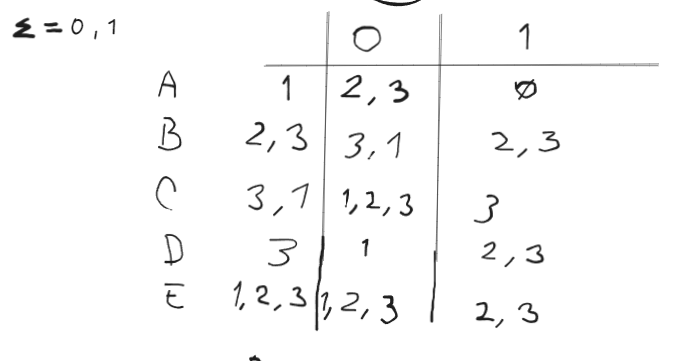 Σ = 0, 1
0 1
A 1 2, 3 ∅
B 2, 3 3, 1 2, 3
C 3, 1 1, 2, 3 3
D 3 1 2, 3
E 1, 2, 3 1, 2, 3 2, 3